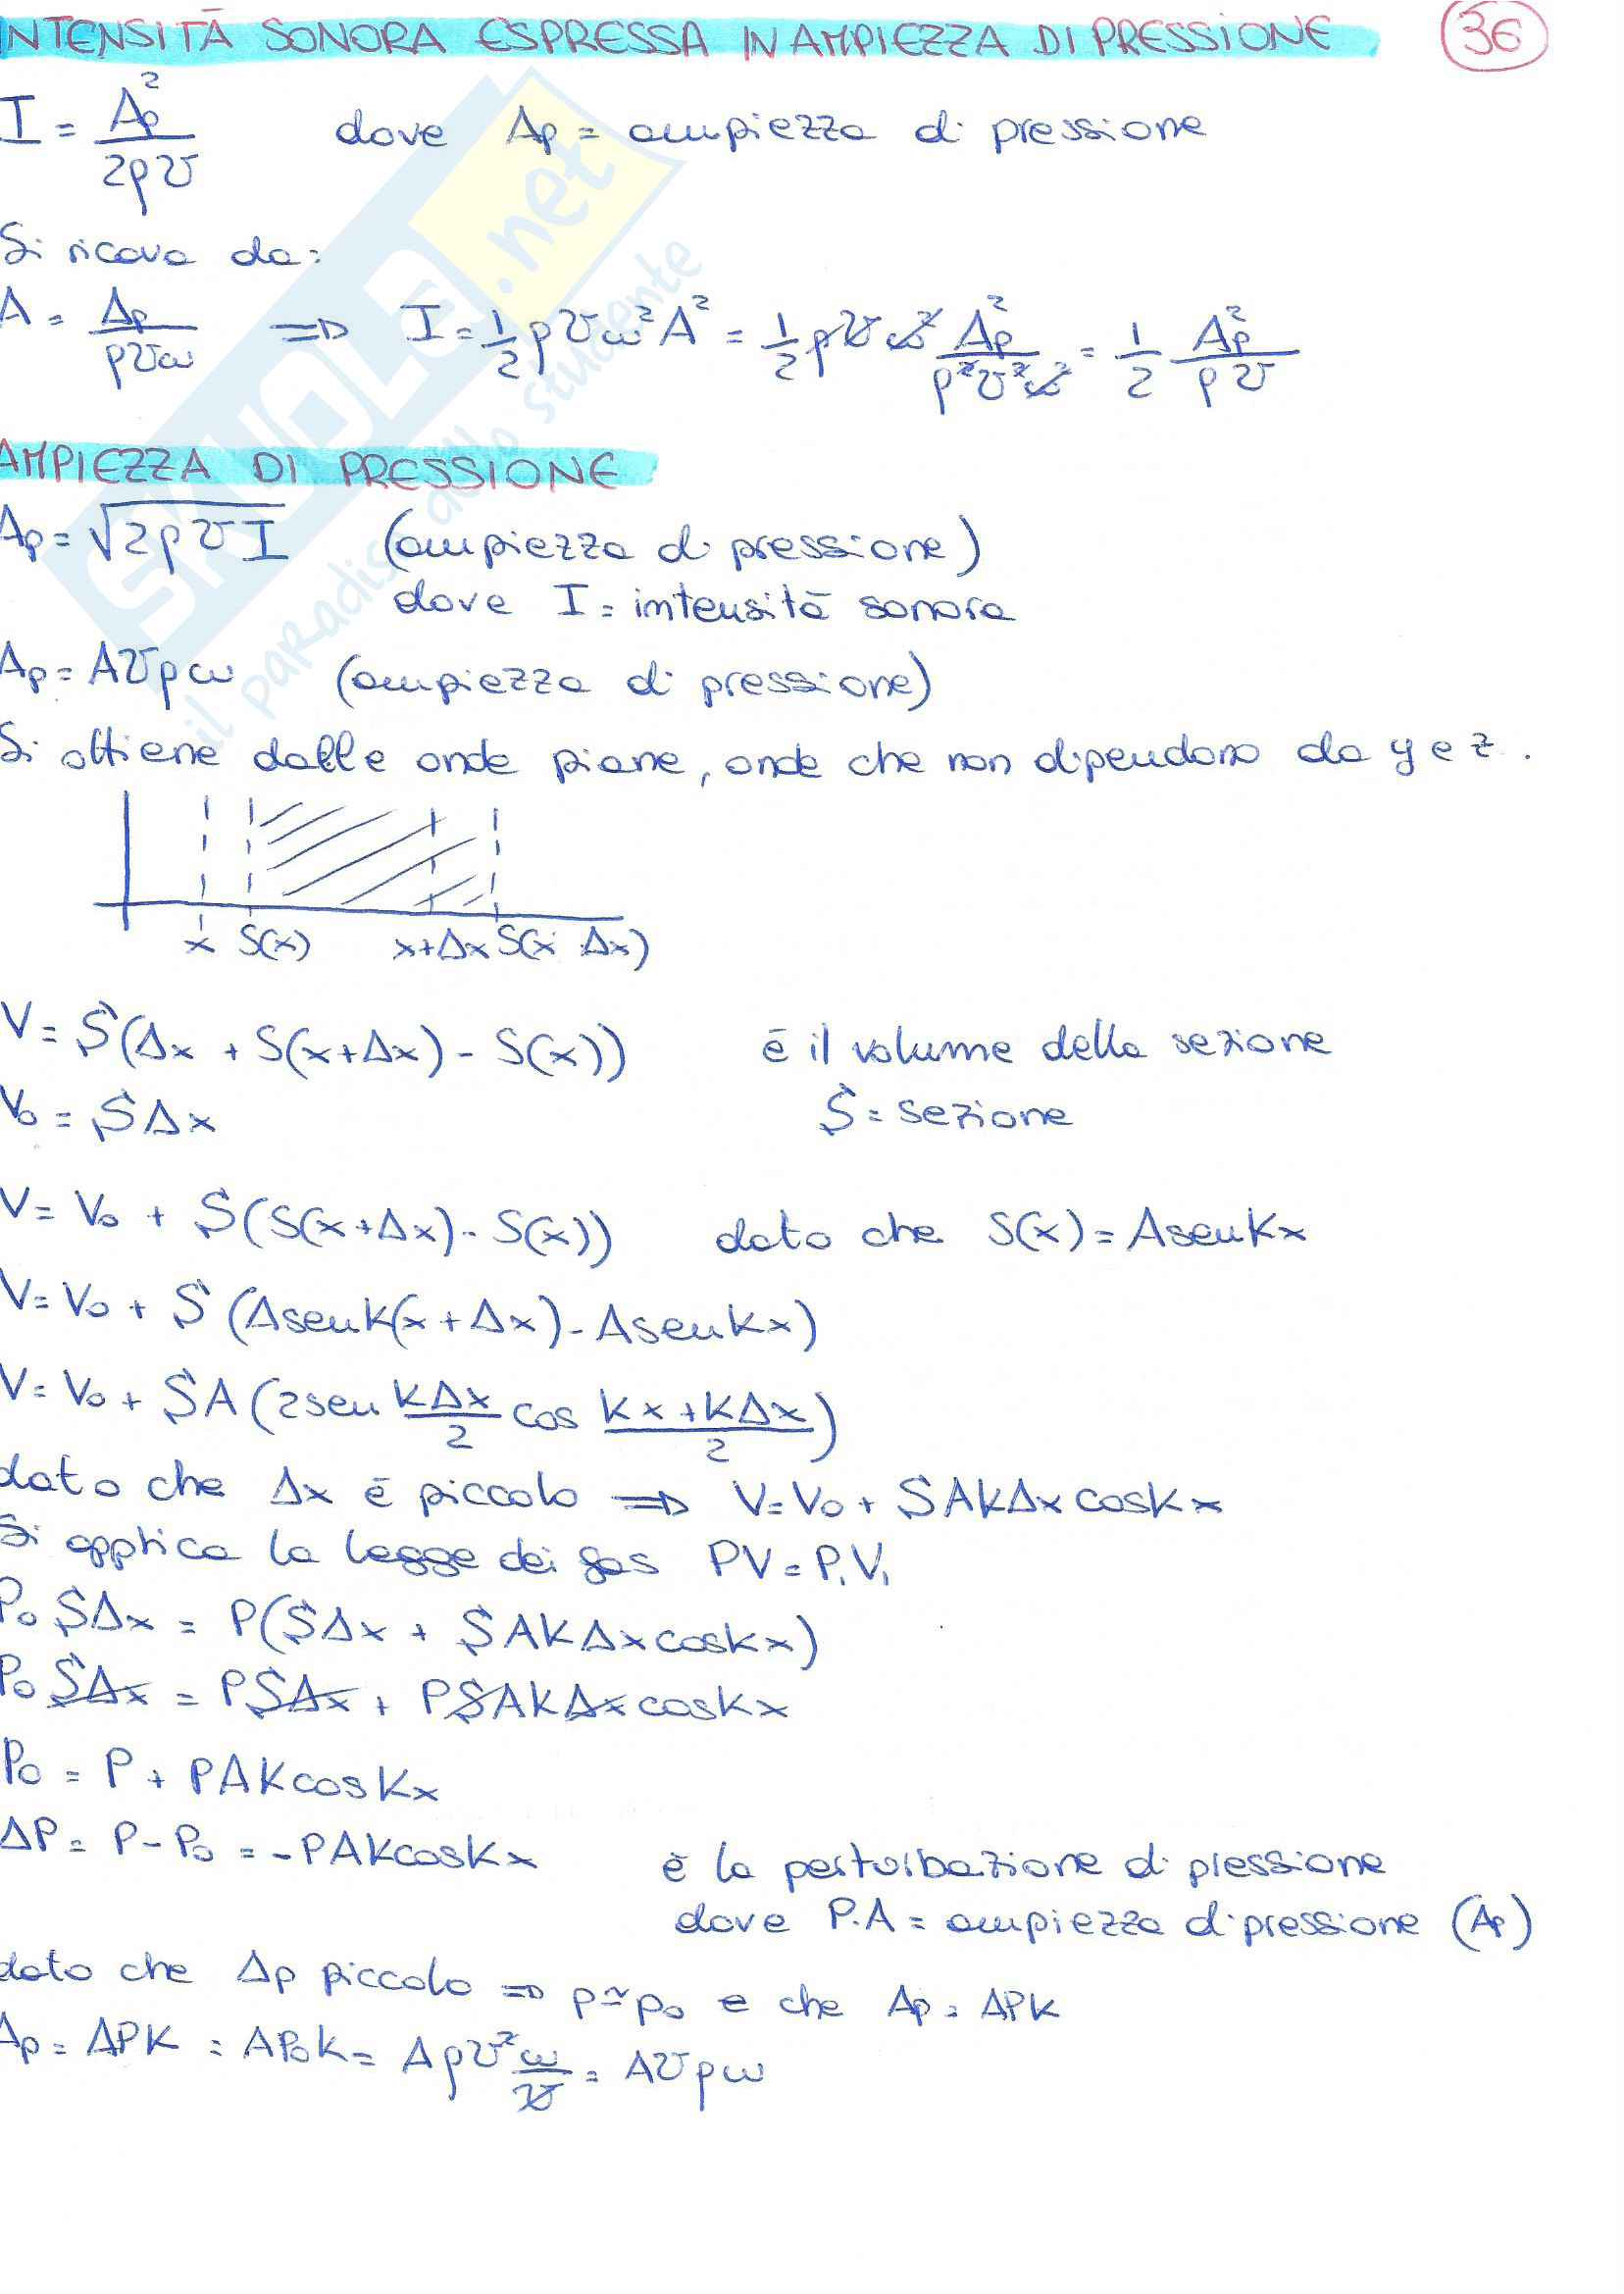 INTENSITÀ SONORA ESPRESSA IN AMPIEZZA DI PRESSIONE 36
I = Ap²/2ρv dove Ap = ampiezza di pressione
Si ricava da:
A = Ap/ρvω ⇒ I = 1/2 ρvω²A² = 1/2 ρvω² Ap²/ρ²v²ω² = 1/2 Ap²/ρv
AMPIEZZA DI PRESSIONE
Ap = √2ρvI (ampiezza di pressione)
dove I = intensità sonora
Ap = Avρω (ampiezza di pressione)
Si ottiene dalle onde piane, onde che non dipendono da y e z.
x S(x) x+Δx S(x Δx)
V = S(Δx + S(x+Δx) - S(x)) è il volume della sezione
V₀ = SΔx S = sezione
V = V₀ + S(S(x+Δx) - S(x)) dato che S(x) = AsenKx
V = V₀ + S(AsenK(x+Δx) - AsenKx)
V = V₀ + SA(2sen KΔx/2 cos Kx+KΔx/2)
dato che Δx è piccolo ⇒ V = V₀ + SAKΔxcosKx
Si applica la legge dei gas PV = P₁V₁
P₀SΔx = P(SΔx + SAKΔxcosKx)
P₀SΔx = PSΔx + PSAKΔxcosKx
P₀ = P + PAKcosKx
ΔP = P - P₀ = -PAKcosKx è la perturbazione di pressione
dove P.A = ampiezza di pressione (Ap)
dato che Δp piccolo ⇒ p≃p₀ e che Ap = APK
Ap = APK = AP₀K = Aρv² ω/v = Avρω
SKUOLA.net
il paradiso dello studente